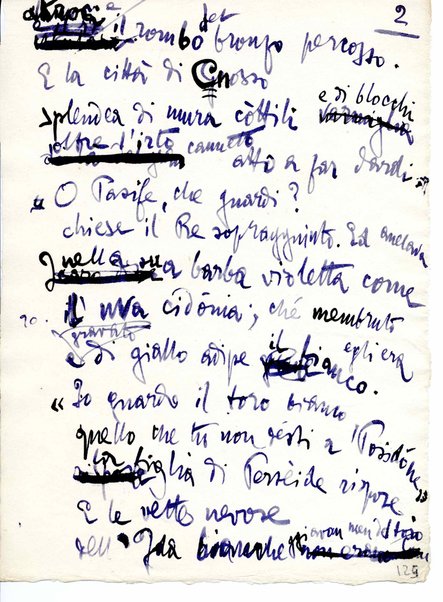 2
il rombo del bronzo percosso.
E la città di Gnosso
splendea di mura còttili e di blocchi
oltre l'irto canneto atto a far dardi.
« O Pasife, che guardi?
chiese il Re sopraggiunto. Ed anelava
nella sua barba violetta come
l'uva cidònia; ché membruto
e di giallo adipe egli era
gravato il fianco.
« Io guardo il toro bianco
quello che tu non désti a Posidóne »
la figlia di Perséide rispose
E le vette nevose
dell'Ida bianche eran men del toro
125